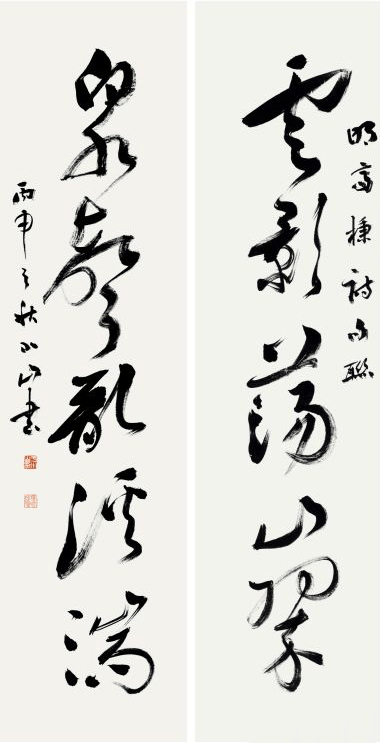 明高棅詩句聯
雲影蕩山翠
泉聲亂溪湍
丙申之秋山書